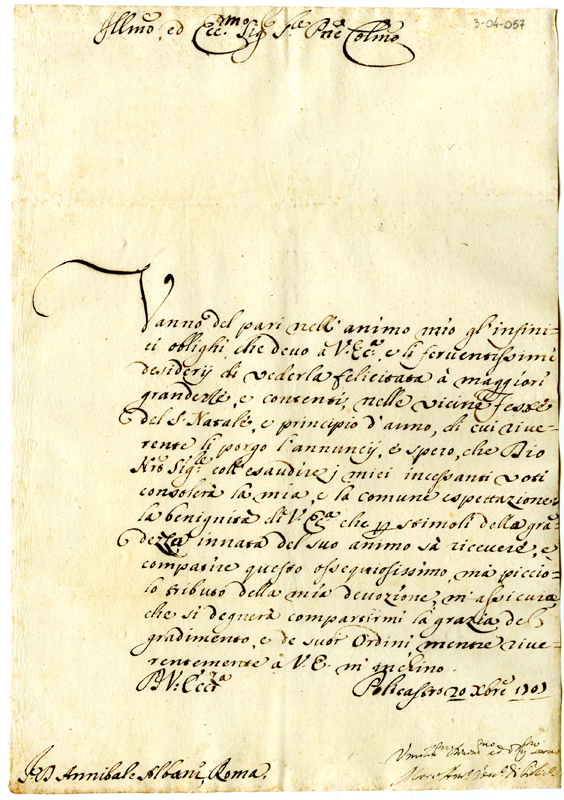 3-04-057
Illmo, ed Eccmo Sigr Sre Pne Colmo
Vanno del pari nell' animo mio gl' infini=
ti oblighi, che devo à V. Ecca, e li feruentissimi
desiderij di vederla felicitata à maggiori
grandezze, e contenti, nelle vicine Feste
del S. Natale, e principio d'anno, di cui rive=
rente li porgo l'annuncij, e spero, che Dio
Nro Sigre coll' esaudire j miei incessanti voti
consolerà la mia, e la comune espettazione
la benignità di V. Ecca che per stimoli della gra=
dezza innata del suo animo sà ricevere, e
compatire questo ossequiosissimo, mà piccio=
lo tributo della mia devozione, m'assicura
che si degnerà compartirmi la grazia del
gradimento, e de suoi Ordini mentre rive=
rentemente à V. E. m' inchino.
D V. Eccza Policastro 20 Xbre 1701
D Annibale Albani, Roma.